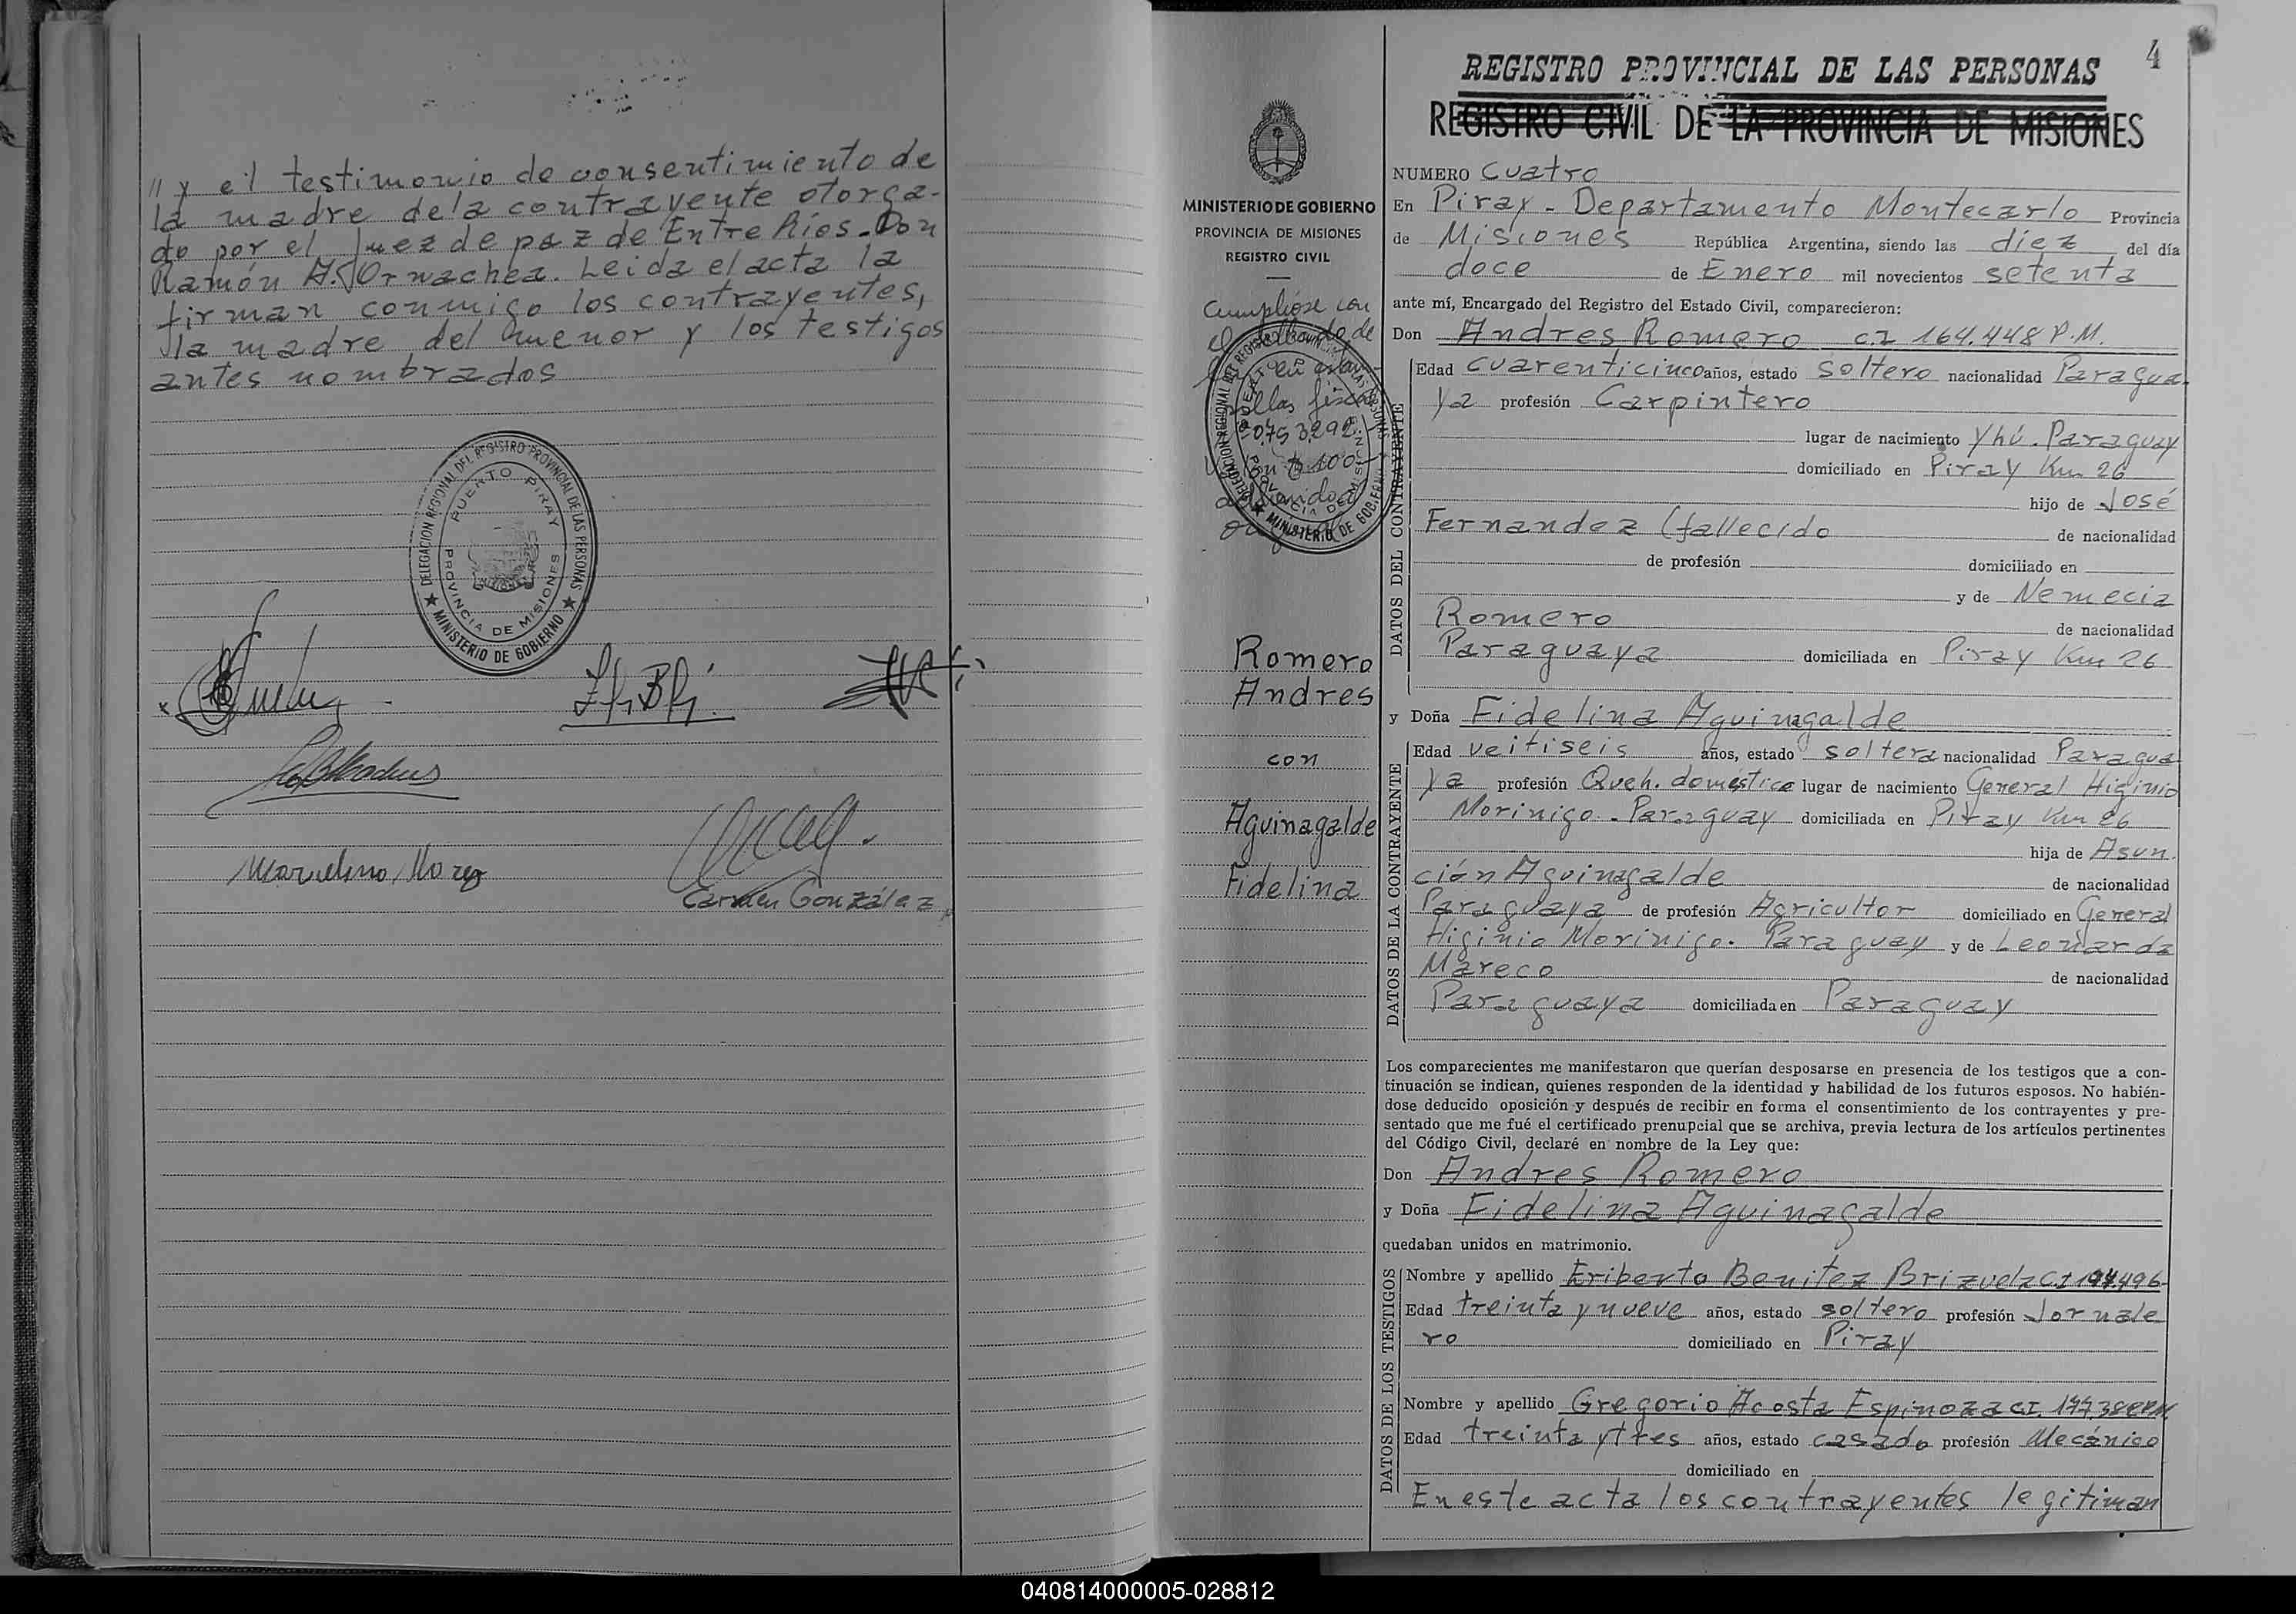 " y el testimonio de consentimiento de
la madre dela contrayente otorga-
do por el Juez de paz de Entre Rios. Don
Ramón A. Ormachea. Leida el acta la
firman conmigo los contrayentes,
la madre del menor y los testigos
antes nombrados
DELEGACION REGIONAL DEL REGISTRO PROVINCIAL DE LAS PERSONAS
PUERTO PIRAY
PROVINCIA DE MISIONES
★ MINISTERIO DE GOBIERNO ★
Marcelino
Carmen González
4
REGISTRO PROVINCIAL DE LAS PERSONAS
REGISTRO CIVIL DE LA PROVINCIA DE MISIONES
MINISTERIO DE GOBIERNO
PROVINCIA DE MISIONES
REGISTRO CIVIL
Cumplióse con
el
en
100
Romero
Andres
con
Aguinagalde
Fidelina
NUMERO Cuatro
En Piray - Departamento Montecarlo Provincia
de Misiones República Argentina, siendo las diez del día
doce de Enero mil novecientos setenta
ante mí, Encargado del Registro del Estado Civil, comparecieron:
Don Andres Romero C.I 164.448 P.M.
DATOS DEL CONTRAYENTE
Edad cuarenticinco años, estado soltero nacionalidad Paragua-
ya profesión Carpintero
lugar de nacimiento Yhú. Paraguay
domiciliado en Piray Km 26
hijo de José
Fernandez (fallecido de nacionalidad
de profesión domiciliado en
y de Nemecia
Romero de nacionalidad
Paraguaya domiciliada en Piray Km 26
y Doña Fidelina Aguinagalde
DATOS DE LA CONTRAYENTE
Edad veitiseis años, estado soltera nacionalidad Paragua
ya profesión Queh. domestica lugar de nacimiento General Higinio
Morinigo - Paraguay domiciliada en Piray Km 26
hija de Asun.
ción Aguinagalde de nacionalidad
Paraguaya de profesión Agricultor domiciliado en General
Higinio Morinigo. Paraguay y de Leonarda
Mareco de nacionalidad
Paraguaya domiciliada en Paraguay
Los comparecientes me manifestaron que querían desposarse en presencia de los testigos que a con-
tinuación se indican, quienes responden de la identidad y habilidad de los futuros esposos. No habién-
dose deducido oposición y después de recibir en forma el consentimiento de los contrayentes y pre-
sentado que me fué el certificado prenupcial que se archiva, previa lectura de los artículos pertinentes
del Código Civil, declaré en nombre de la Ley que:
Don Andres Romero
y Doña Fidelina Aguinagalde
quedaban unidos en matrimonio.
DATOS DE LOS TESTIGOS
Nombre y apellido Eriberto Benitez Brizuela C.I
Edad treinta y nueve años, estado soltero profesión Jornale
ro domiciliado en Piray
Nombre y apellido Gregorio Acosta Espinoza C.I.
Edad treinta y tres años, estado casado profesión Mecánico
domiciliado en
En este acta los contrayentes legitiman
040814000005-028812